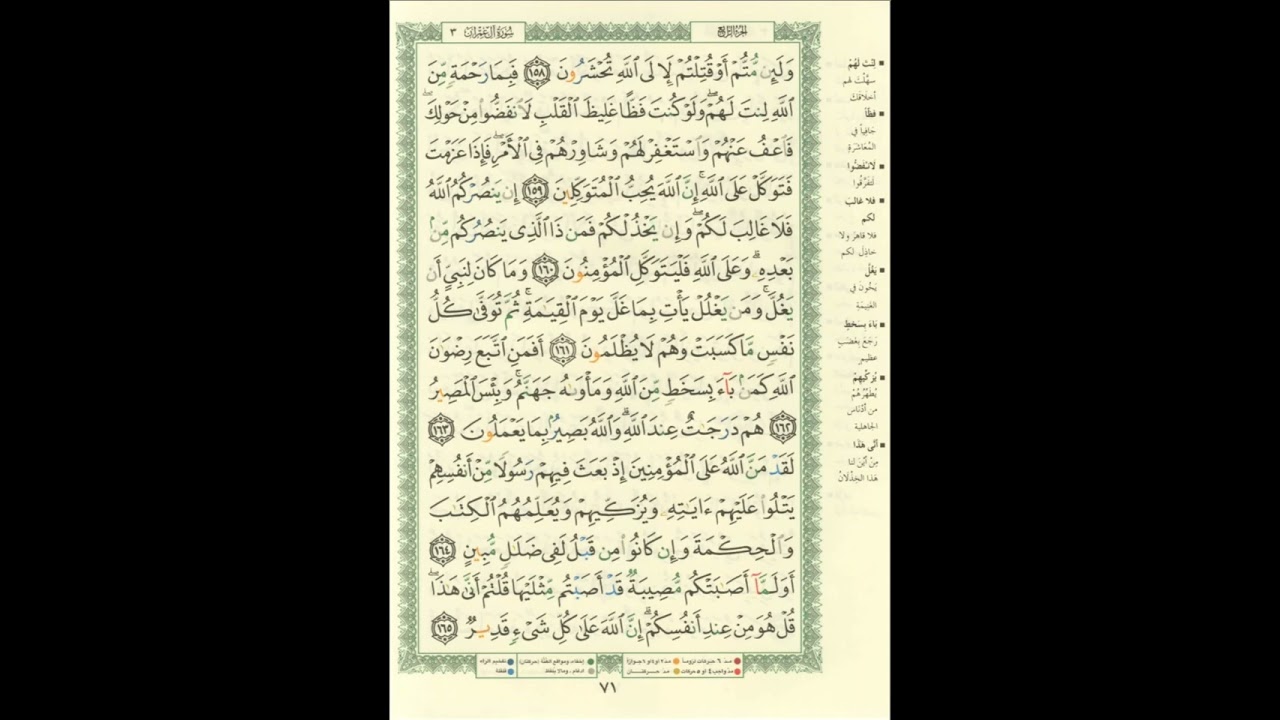 سُورَةُ آلِ عِمْرَانَ ٣
الجُزءُ الرَّابِعُ
وَلَئِن مُّتُّمْ أَوْ قُتِلْتُمْ لَإِلَى ٱللَّهِ تُحْشَرُونَ ١٥٨ فَبِمَا رَحْمَةٍ مِّنَ
ٱللَّهِ لِنتَ لَهُمْ ۖ وَلَوْ كُنتَ فَظًّا غَلِيظَ ٱلْقَلْبِ لَٱنفَضُّوا۟ مِنْ حَوْلِكَ ۖ
فَٱعْفُ عَنْهُمْ وَٱسْتَغْفِرْ لَهُمْ وَشَاوِرْهُمْ فِى ٱلْأَمْرِ ۖ فَإِذَا عَزَمْتَ
فَتَوَكَّلْ عَلَى ٱللَّهِ ۚ إِنَّ ٱللَّهَ يُحِبُّ ٱلْمُتَوَكِّلِينَ ١٥٩ إِن يَنصُرْكُمُ ٱللَّهُ
فَلَا غَالِبَ لَكُمْ ۖ وَإِن يَخْذُلْكُمْ فَمَن ذَا ٱلَّذِى يَنصُرُكُم مِّنۢ
بَعْدِهِۦ ۗ وَعَلَى ٱللَّهِ فَلْيَتَوَكَّلِ ٱلْمُؤْمِنُونَ ١٦٠ وَمَا كَانَ لِنَبِىٍّ أَن
يَغُلَّ ۚ وَمَن يَغْلُلْ يَأْتِ بِمَا غَلَّ يَوْمَ ٱلْقِيَـٰمَةِ ۚ ثُمَّ تُوَفَّىٰ كُلُّ
نَفْسٍ مَّا كَسَبَتْ وَهُمْ لَا يُظْلَمُونَ ١٦١ أَفَمَنِ ٱتَّبَعَ رِضْوَٰنَ
ٱللَّهِ كَمَنۢ بَآءَ بِسَخَطٍ مِّنَ ٱللَّهِ وَمَأْوَىٰهُ جَهَنَّمُ ۚ وَبِئْسَ ٱلْمَصِيرُ
١٦٢ هُمْ دَرَجَـٰتٌ عِندَ ٱللَّهِ ۗ وَٱللَّهُ بَصِيرٌۢ بِمَا يَعْمَلُونَ ١٦٣
لَقَدْ مَنَّ ٱللَّهُ عَلَى ٱلْمُؤْمِنِينَ إِذْ بَعَثَ فِيهِمْ رَسُولًا مِّنْ أَنفُسِهِمْ
يَتْلُوا۟ عَلَيْهِمْ ءَايَـٰتِهِۦ وَيُزَكِّيهِمْ وَيُعَلِّمُهُمُ ٱلْكِتَـٰبَ
وَٱلْحِكْمَةَ وَإِن كَانُوا۟ مِن قَبْلُ لَفِى ضَلَـٰلٍ مُّبِينٍ ١٦٤
أَوَلَمَّآ أَصَـٰبَتْكُم مُّصِيبَةٌ قَدْ أَصَبْتُم مِّثْلَيْهَا قُلْتُمْ أَنَّىٰ هَـٰذَا ۖ
قُلْ هُوَ مِنْ عِندِ أَنفُسِكُمْ ۗ إِنَّ ٱللَّهَ عَلَىٰ كُلِّ شَىْءٍ قَدِيرٌ ١٦٥
لِنْتَ لَهُمْ
سَهَّلْتَ لَهم
أَخلاقَكَ
فَظّاً
جَافِياً في
المُعَاشَرَةِ
لانْفَضُّوا
لَتَفَرَّقُوا
فَلا غالِبَ
لكم
فلا قاهرَ ولا
خاذِلَ لكم
يَغُلَّ
يَخُونَ في
الغنِيمَةِ
بَاءَ بِسَخَطٍ
رَجَعَ بِغَضَبٍ
عظيمٍ
يُزَكِّيهِمْ
يُطَهِّرُهُمْ
من أدْنَاسِ
الجاهلية
أَنّى هَذَا
مِنْ أَيْنَ لنا
هَذا الخِذْلانُ
مدّ ٦ حركات لزوماً
مدّ ٢ أو ٤ أو ٦ جوازاً
مدّ واجب ٤ أو ٥ حركات
مدّ حركتان
إخفاء، ومواقع الغُنَّة (حركتان)
ادغام، وما لا يُلفَظ
تفخيم الراء
قلقلة
٧١